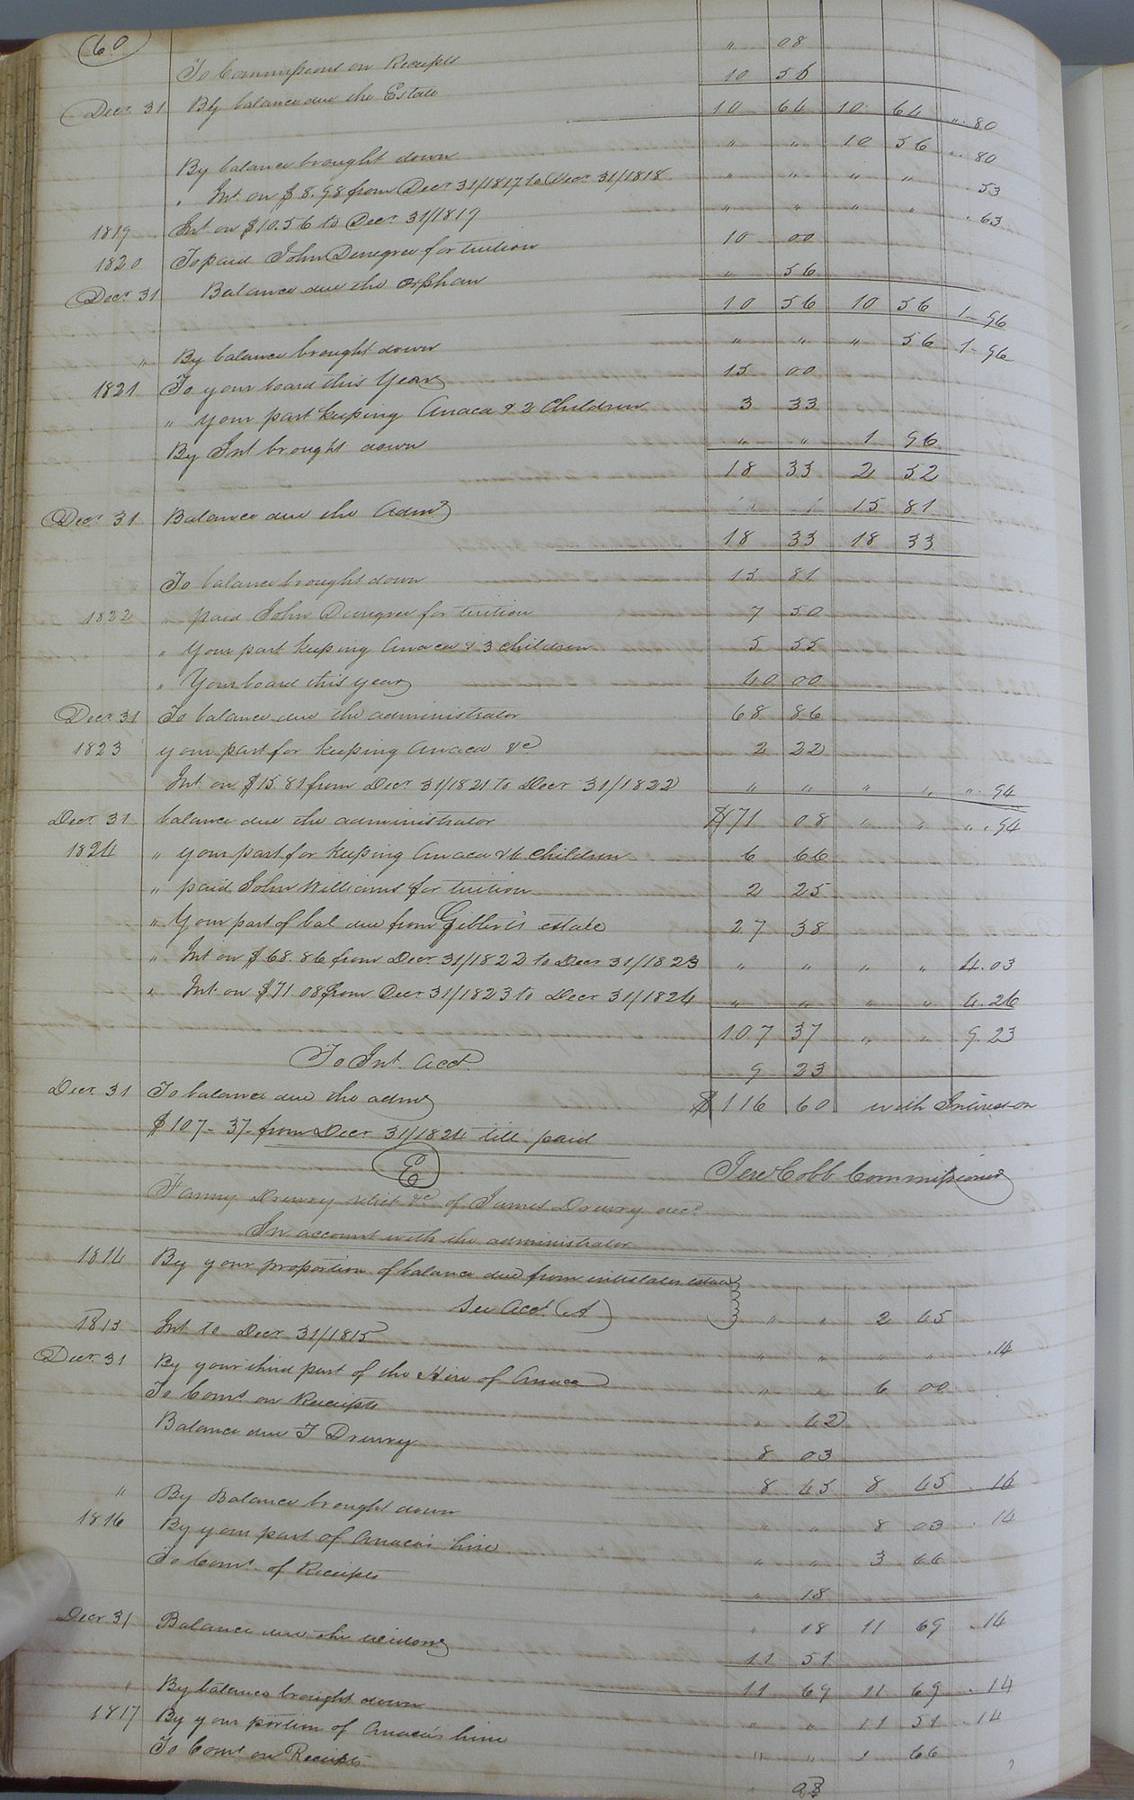 60
To Commissions on Receipts " 08
10 56
Decr. 31 By balance due the Estate 10 64 10 64 ". 80
By balance brought down " " 10 56 ". 80
" Int on $8.98 from Decr 31/1817 to Decr 31/1818 " " " " . 53
1819 Int on $10.56 to Decr 31/1819 " " " " . 63
1820 To paid John Denegree for tuition 10 00
Decr 31 Balance due the orphan " 56
10 56 10 56 1-96
" By balance brought down " " " 56 1-96
1821 To your board this Year 15 00
" your part keeping Anaca & 2 Children 3 33
By Int brought down " " 1 96
18 33 2 52
Decr 31 Balance due the Admr " " 15 81
18 33 18 33
To balance brought down 15 81
1822 " paid John Denegree for tuition 7 50
" Your part keeping Anaca & 3 children 5 55
" Your board this year 40 00
Decr 31 To balance due the administrator 68 86
1823 your part for keeping Anaca &c 2 22
Int on $15.81 from Decr 31/1821 to Decr 31/1822 " " " " ". 94
Decr 31 balance due the administrator $71 08 " " ". 94
1824 " your part for keeping Anaca & 6 Children 6 66
" paid John Williams for tuition 2 25
" Your part of bal due from Gilbert's estate 27 38
" Int on $68.86 from Decr 31/1822 to Decr 31/1823 " " " " 4.03
" Int on $71 08 from Decr 31/1823 to Decr 31/1824 " " " " 4.26
107 37 " " 9.23
To Int. Acct. 9 23
Decr 31 To balance due the admr $116 60 with Interest on
$107-37- from Decr 31/1824 till paid
(E) Jere Cobb Commissioner
Fanny Drewry relict &c of James Drewry decd.
In account with the administrator
1814 By your proportion of balance due from intestates estate
See Acct. (A) " " 2 45
1815 Int to Decr 31/1815 " " " " . 14
Decr 31 By your third part of the Hire of Anaca " " 6 00
To Coms. on Receipts " 42
Balance due F Drewry 8 03
8 45 8 45 . 14
" By Balance brought down " " 8 03 . 14
1816 By your part of Anaca's hire " " 3 66
To Coms. of Receipts " 18
" 18 11 69 . 14
Decr 31 Balance due the widow 11 51
11 69 11 69 . 14
" By balance brought down " " 11 51 . 14
1817 By your portion of Anaca's hire " " 1 66
To Coms. on Receipts " 08